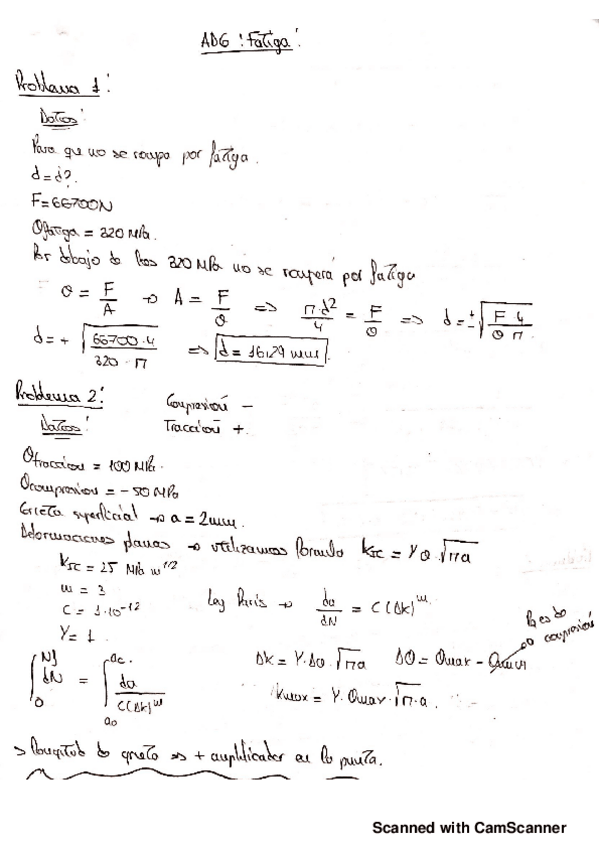 AD6 : Fatiga:
Problema 1:
Datos:
Para que no se rompa por fatiga.
d = d?
F = 66700N
σfatiga = 320 MPa.
Por debajo de los 320 MPa no se romperá por fatiga
σ = F/A → A = F/σ => π·d²/4 = F/σ => d = ±√(F 4/σ π)
d = + √(66700·4/320·π) => d = 16,29 mm.
Problema 2:
Compresión -
Datos:
Tracción +.
σtraccion = 100 MPa.
σcompresion = -50 MPa
Grieta superficial → a = 2mm.
Deformaciones planas → utilizamos formula KIC = Y σ · √πa
KIC = 25 MPa m^1/2
m = 3
C = 1·10^-12
Y = 1.
Ley Paris → da/dN = C(Δk)^m
∫₀^Nf dN = ∫_a0^ac da/C(Δk)^m
Δk = Y·Δσ·√πa Δσ = σmax - σmin
compresión
Kmax = Y·σmax·√π·a.
> Longitud de grieta => + amplificador en la punta.
Scanned with CamScanner